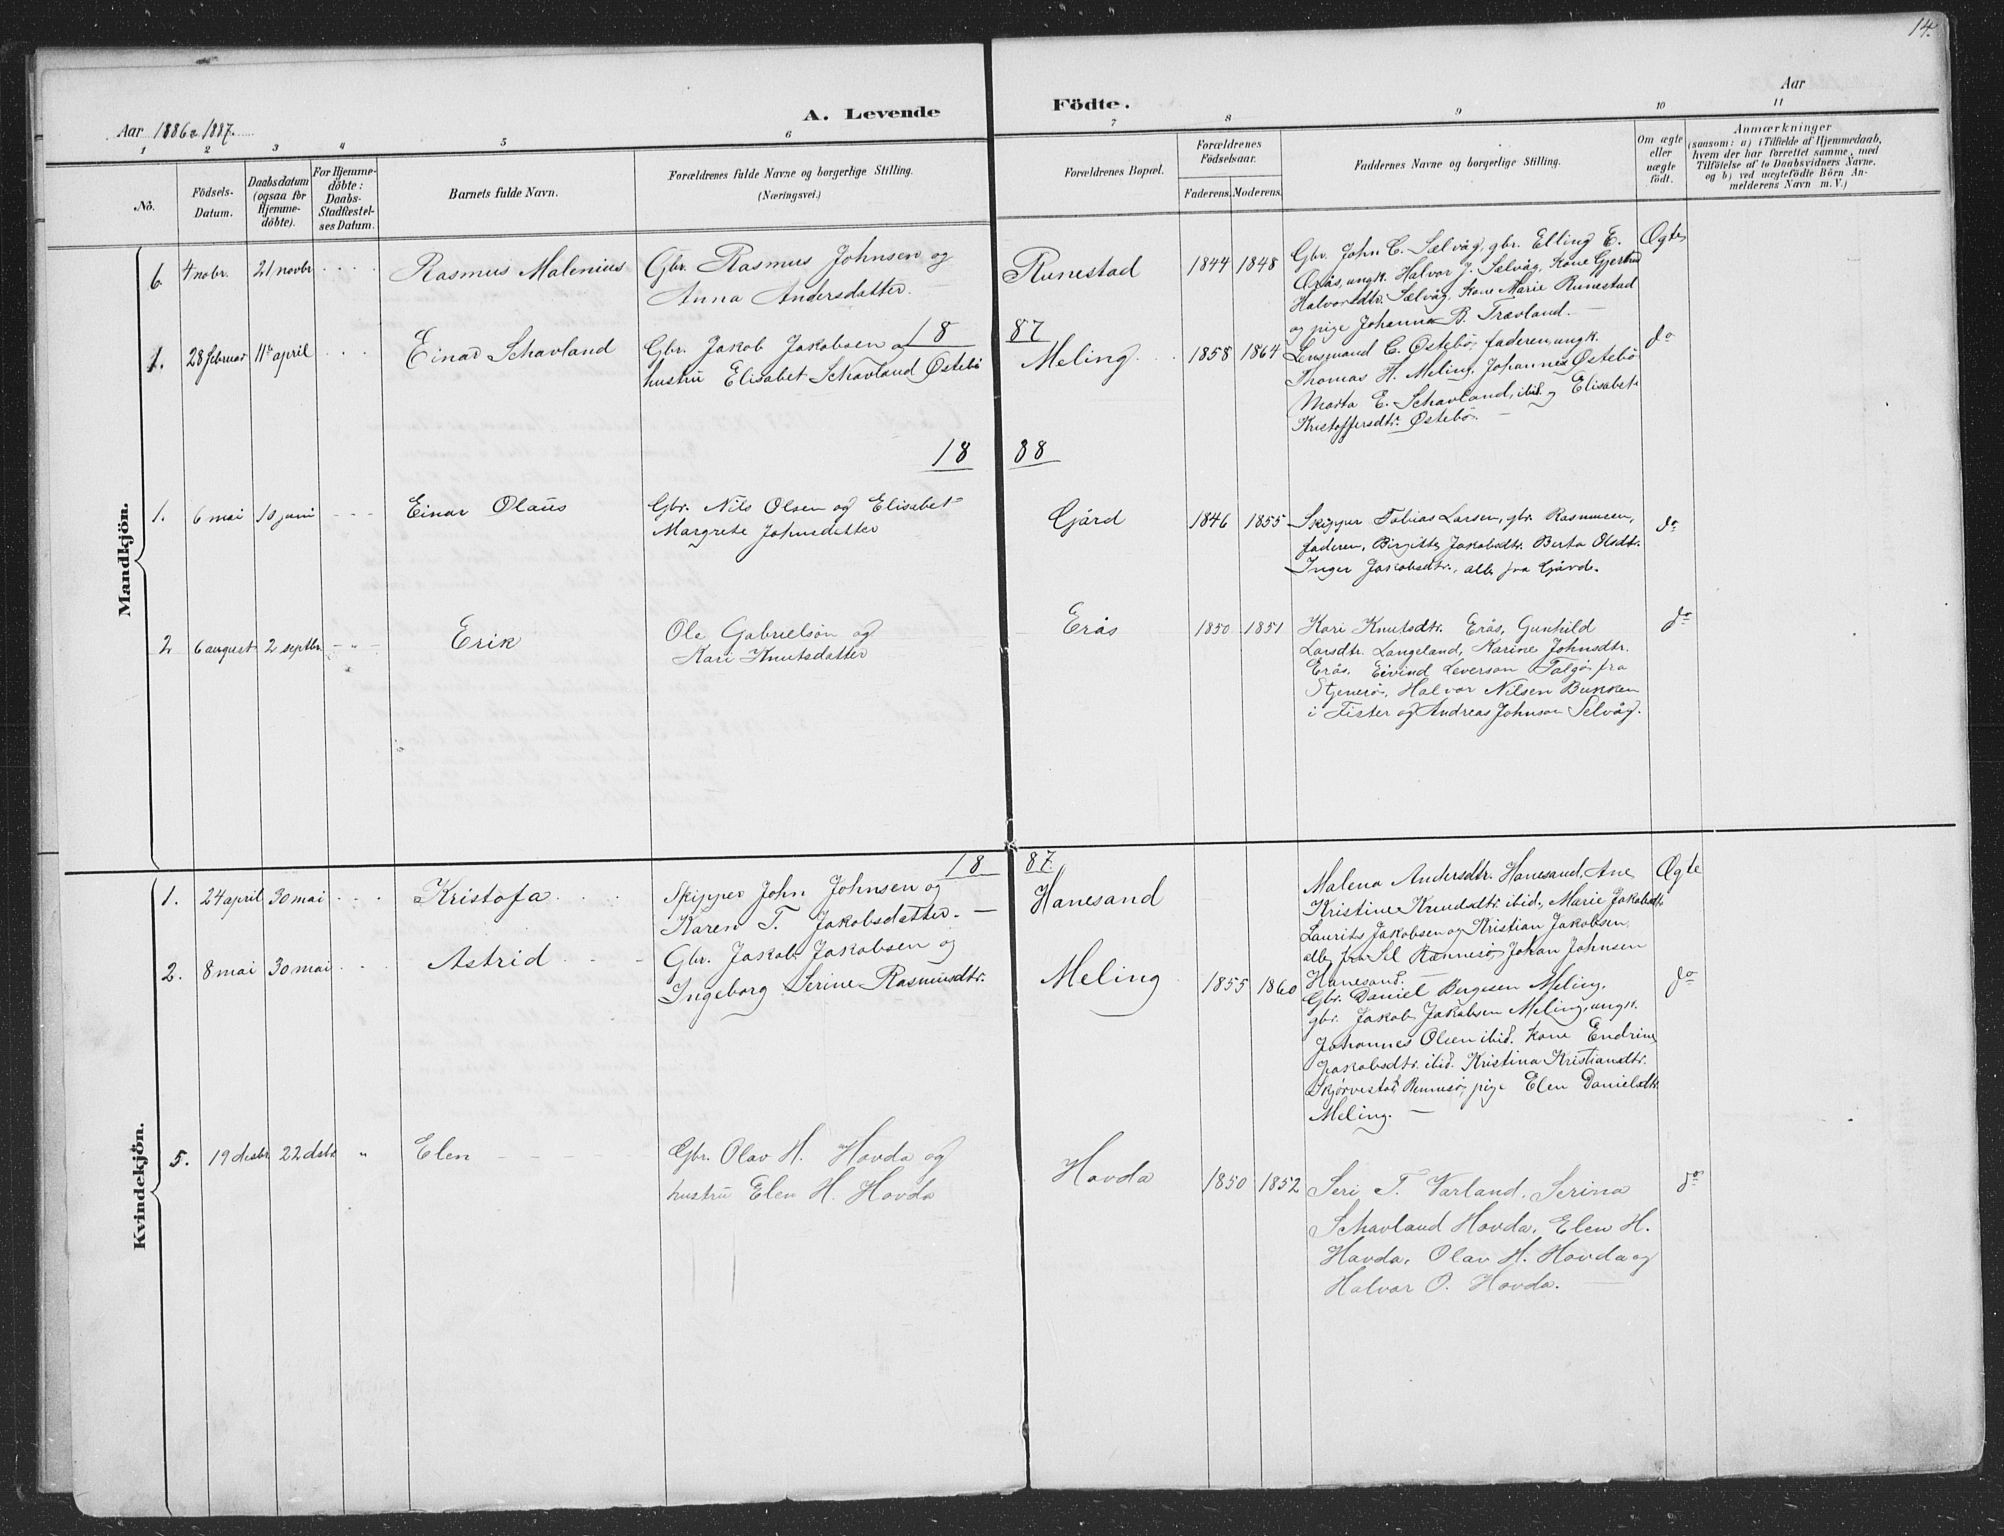 14.
Aar 1886 & 1887.
A. Levende Födte.
Aar
1 2 3 4 5 6 7 8 9 10 11
No.
Födsels-Datum.
Daabsdatum (ogsaa for Hjemme-döbte).
For Hjemme-döbte: Daabs-Stadfæstel-ses Datum.
Barnets fulde Navn.
Forældrenes fulde Navne og borgerlige Stilling.
(Næringsvei.)
Forældrenes Bopæl.
Forældrenes Födselsaar.
Faderens. Moderens.
Faddernes Navne og borgerlige Stilling.
Om ægte eller uægte födt.
Anmærkninger
(saasom: a) i Tilfælde af Hjemmedaab, hvem der har forrettet samme, med Tilföielse af to Daabsvidners Navne. og b) ved uægtefödte Börn An-melderens Navn m. V.)
Mandkjön.
6. 4 nobr. 21 novbr Rasmus Malenius Gbr. Rasmus Johnsen og
Anna Andersdatter.
Runestad 1844 1848
Gbr. John C. Sælvåg, gbr. Elling E.
Erås, ungk. Halvor J. Sælvåg, Kone Gjertrud
Halvorsdtr. Sælvåg, Kone Marie Runestad
og pige Johanna B. Trævland.
Ægte
1887
1. 28 februar 11te april Einar Schavland Gbr. Jakob Jakobsen og
hustru Elisabet Schavland Østebö
Meling. 1858 1864
Lensmand C. Østebö, faderen, ungk.
Thomas H. Meling, Johannes Østebö
Marta E. Schavland, ibid. og Elisabet
Kristoffersdtr. Østebö.
do
1888
1. 6 mai 10 juni Einar Olaus Gbr. Nils Olsen og Elisabet
Margrete Johnsdatter
Gård 1846 1855
Skipper Tobias Larsen, gbr. Rasmusen,
faderen, Birgitte Jakobsdtr. Berta Olsdtr.
Inger Jakobsdtr., alle fra Gård.
do
2 6 august 2 septbr. Erik Ole Gabrielson og
Kari Knutsdatter
Erås 1850 1851
Kari Knutsdtr. Erås, Gunhild
Larsdtr. Langeland, Karine Johnsdtr.
Erås, Eivind Leverson Talgö fra
Stjernerö, Halvor Nilsen Bunken
i Fister og Andreas Johnson Selvåg.
do
Kvindekjön.
1887.
1. 24 april 30 mai Kristofa Skipper John Johnsen og
Karen T. Jakobsdatter.
Hanesand
Malena Andersdtr. Hanesand, Ane
Kristine Knudsdtr ibid, Marie Jakobsdtr.
Laurits Jakobsen og Kristian Jakobsen,
alle fra Sel Rennesö, Johan Johnsen
Hanesand.
Ægte
2. 8 mai 30 mai Astrid Gbr. Jakob Jakobsen og
Ingeborg Serine Rasmusdtr.
Meling 1855 1860
Gbr. Daniel Bergesen Meling,
gbr. Jakob Jakobsen Meling, ungk.
Johannes Olsen ibid. Kone Endrine
Jakobsdtr. ibid. Kristina Kristiansdtr.
Skjørvestad, Rennesö, pige Elen Danielsdtr.
Meling.
do
5. 19 desbr 22 dsbr " Elen Gbr. Olav H. Hovda og
hustru Elen H. Hovda
Hovda 1850 1852
Seri T. Varland, Serina
Schavland Hovda, Elen H.
Havda, Olav H. Hovda og
Halvar O. Hovda.
do